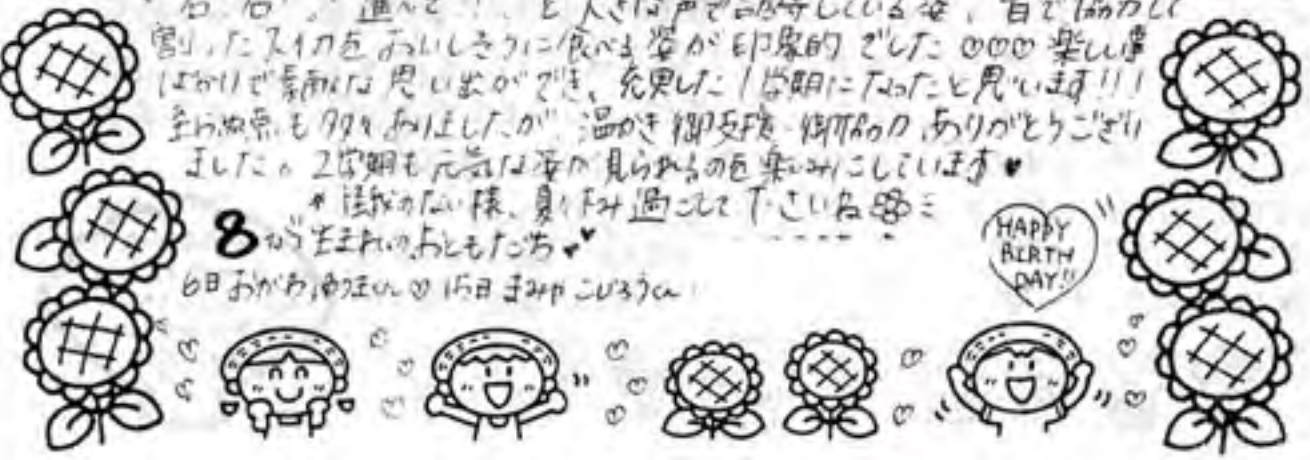 右、右!" "進んで!!" と大きな声で誘導している姿、皆で協力して
割ったスイカをおいしそうに食べる姿が印象的でした♡♡♡楽しい事
ばかりで素敵な思い出ができ、充実した1学期になったと思います!!!
至らぬ点も多々ありましたが温かき御支援・御協力ありがとうござい
ました。2学期も元気な姿が見られるのを楽しみにしています♥
*怪我のない様、夏休み過ごして下さいね
8がつ生まれのおともだち♥
6日おがわ くん♡15日まみや こじろうくん
HAPPY
BIRTH
DAY!!